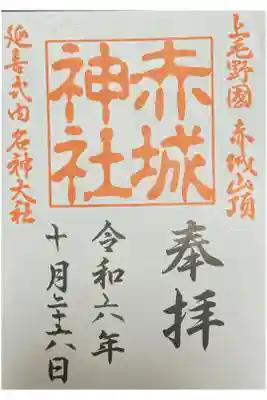 上毛野國 赤城山頂
赤城
神社
延喜式内名神大社
奉拝
令和六年
十月二十六日